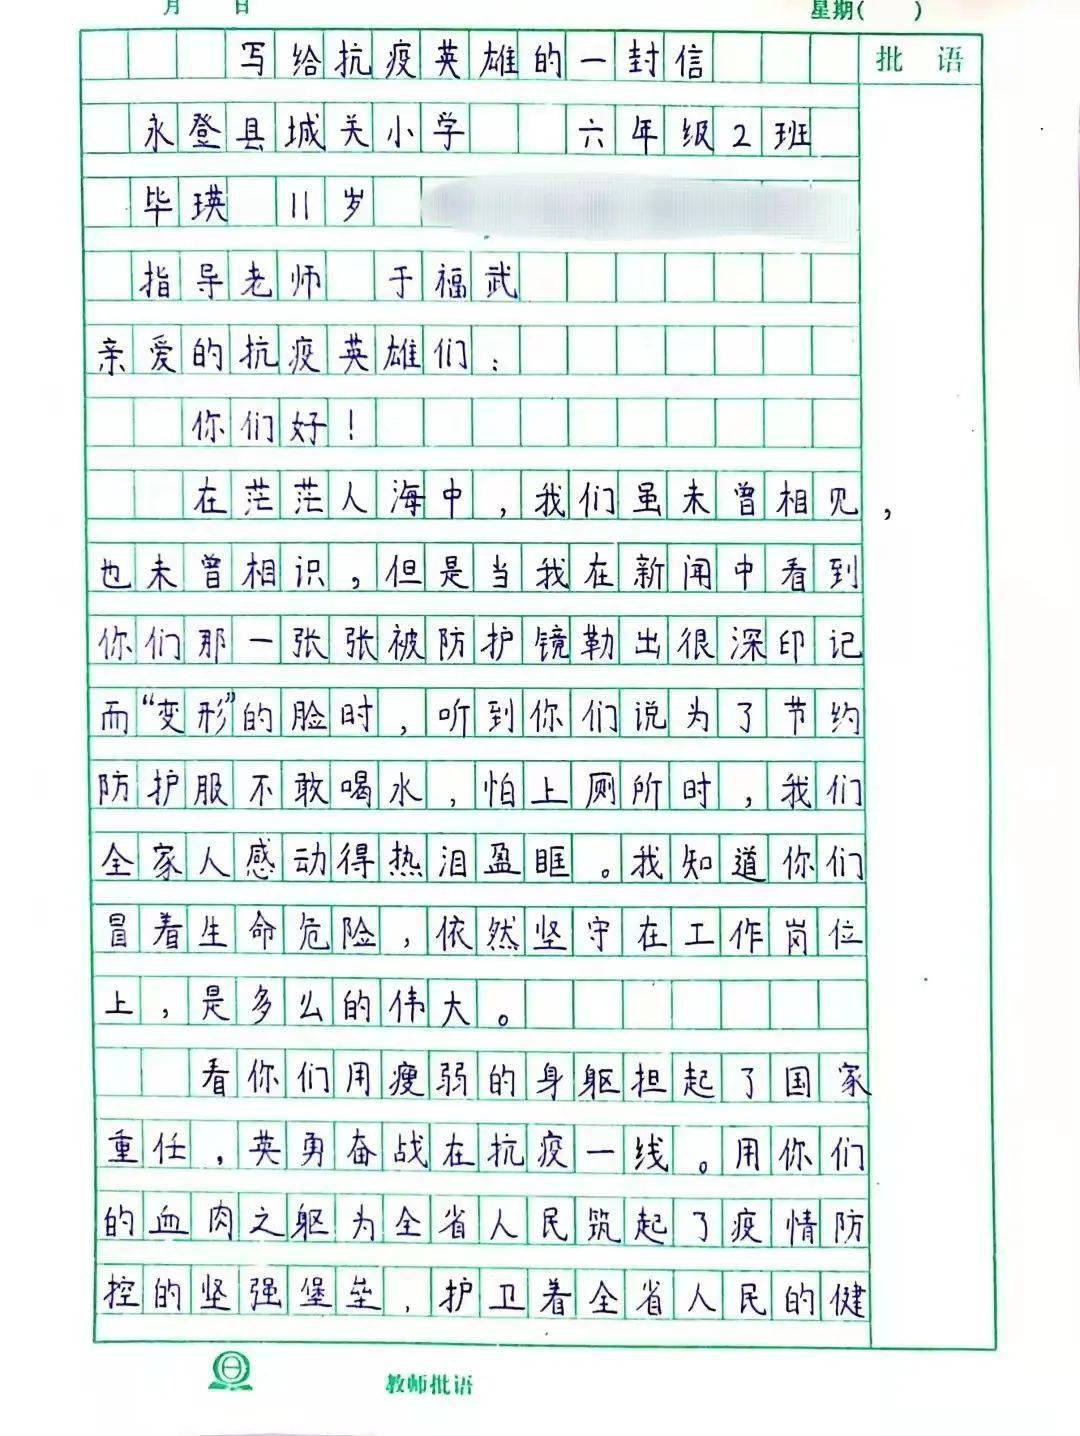 月 日 星期( )
写给抗疫英雄的一封信 批语
永登县城关小学 六年级2班
毕瑛 11岁
指导老师 于福武
亲爱的抗疫英雄们：
你们好！
在茫茫人海中，我们虽未曾相见，
也未曾相识，但是当我在新闻中看到
你们那一张张被防护镜勒出很深印记
而“变形”的脸时，听到你们说为了节约
防护服不敢喝水，怕上厕所时，我们
全家人感动得热泪盈眶。我知道你们
冒着生命危险，依然坚守在工作岗位
上，是多么的伟大。
看你们用瘦弱的身躯担起了国家
重任，英勇奋战在抗疫一线。用你们
的血肉之躯为全省人民筑起了疫情防
控的坚强堡垒，护卫着全省人民的健
教师批语